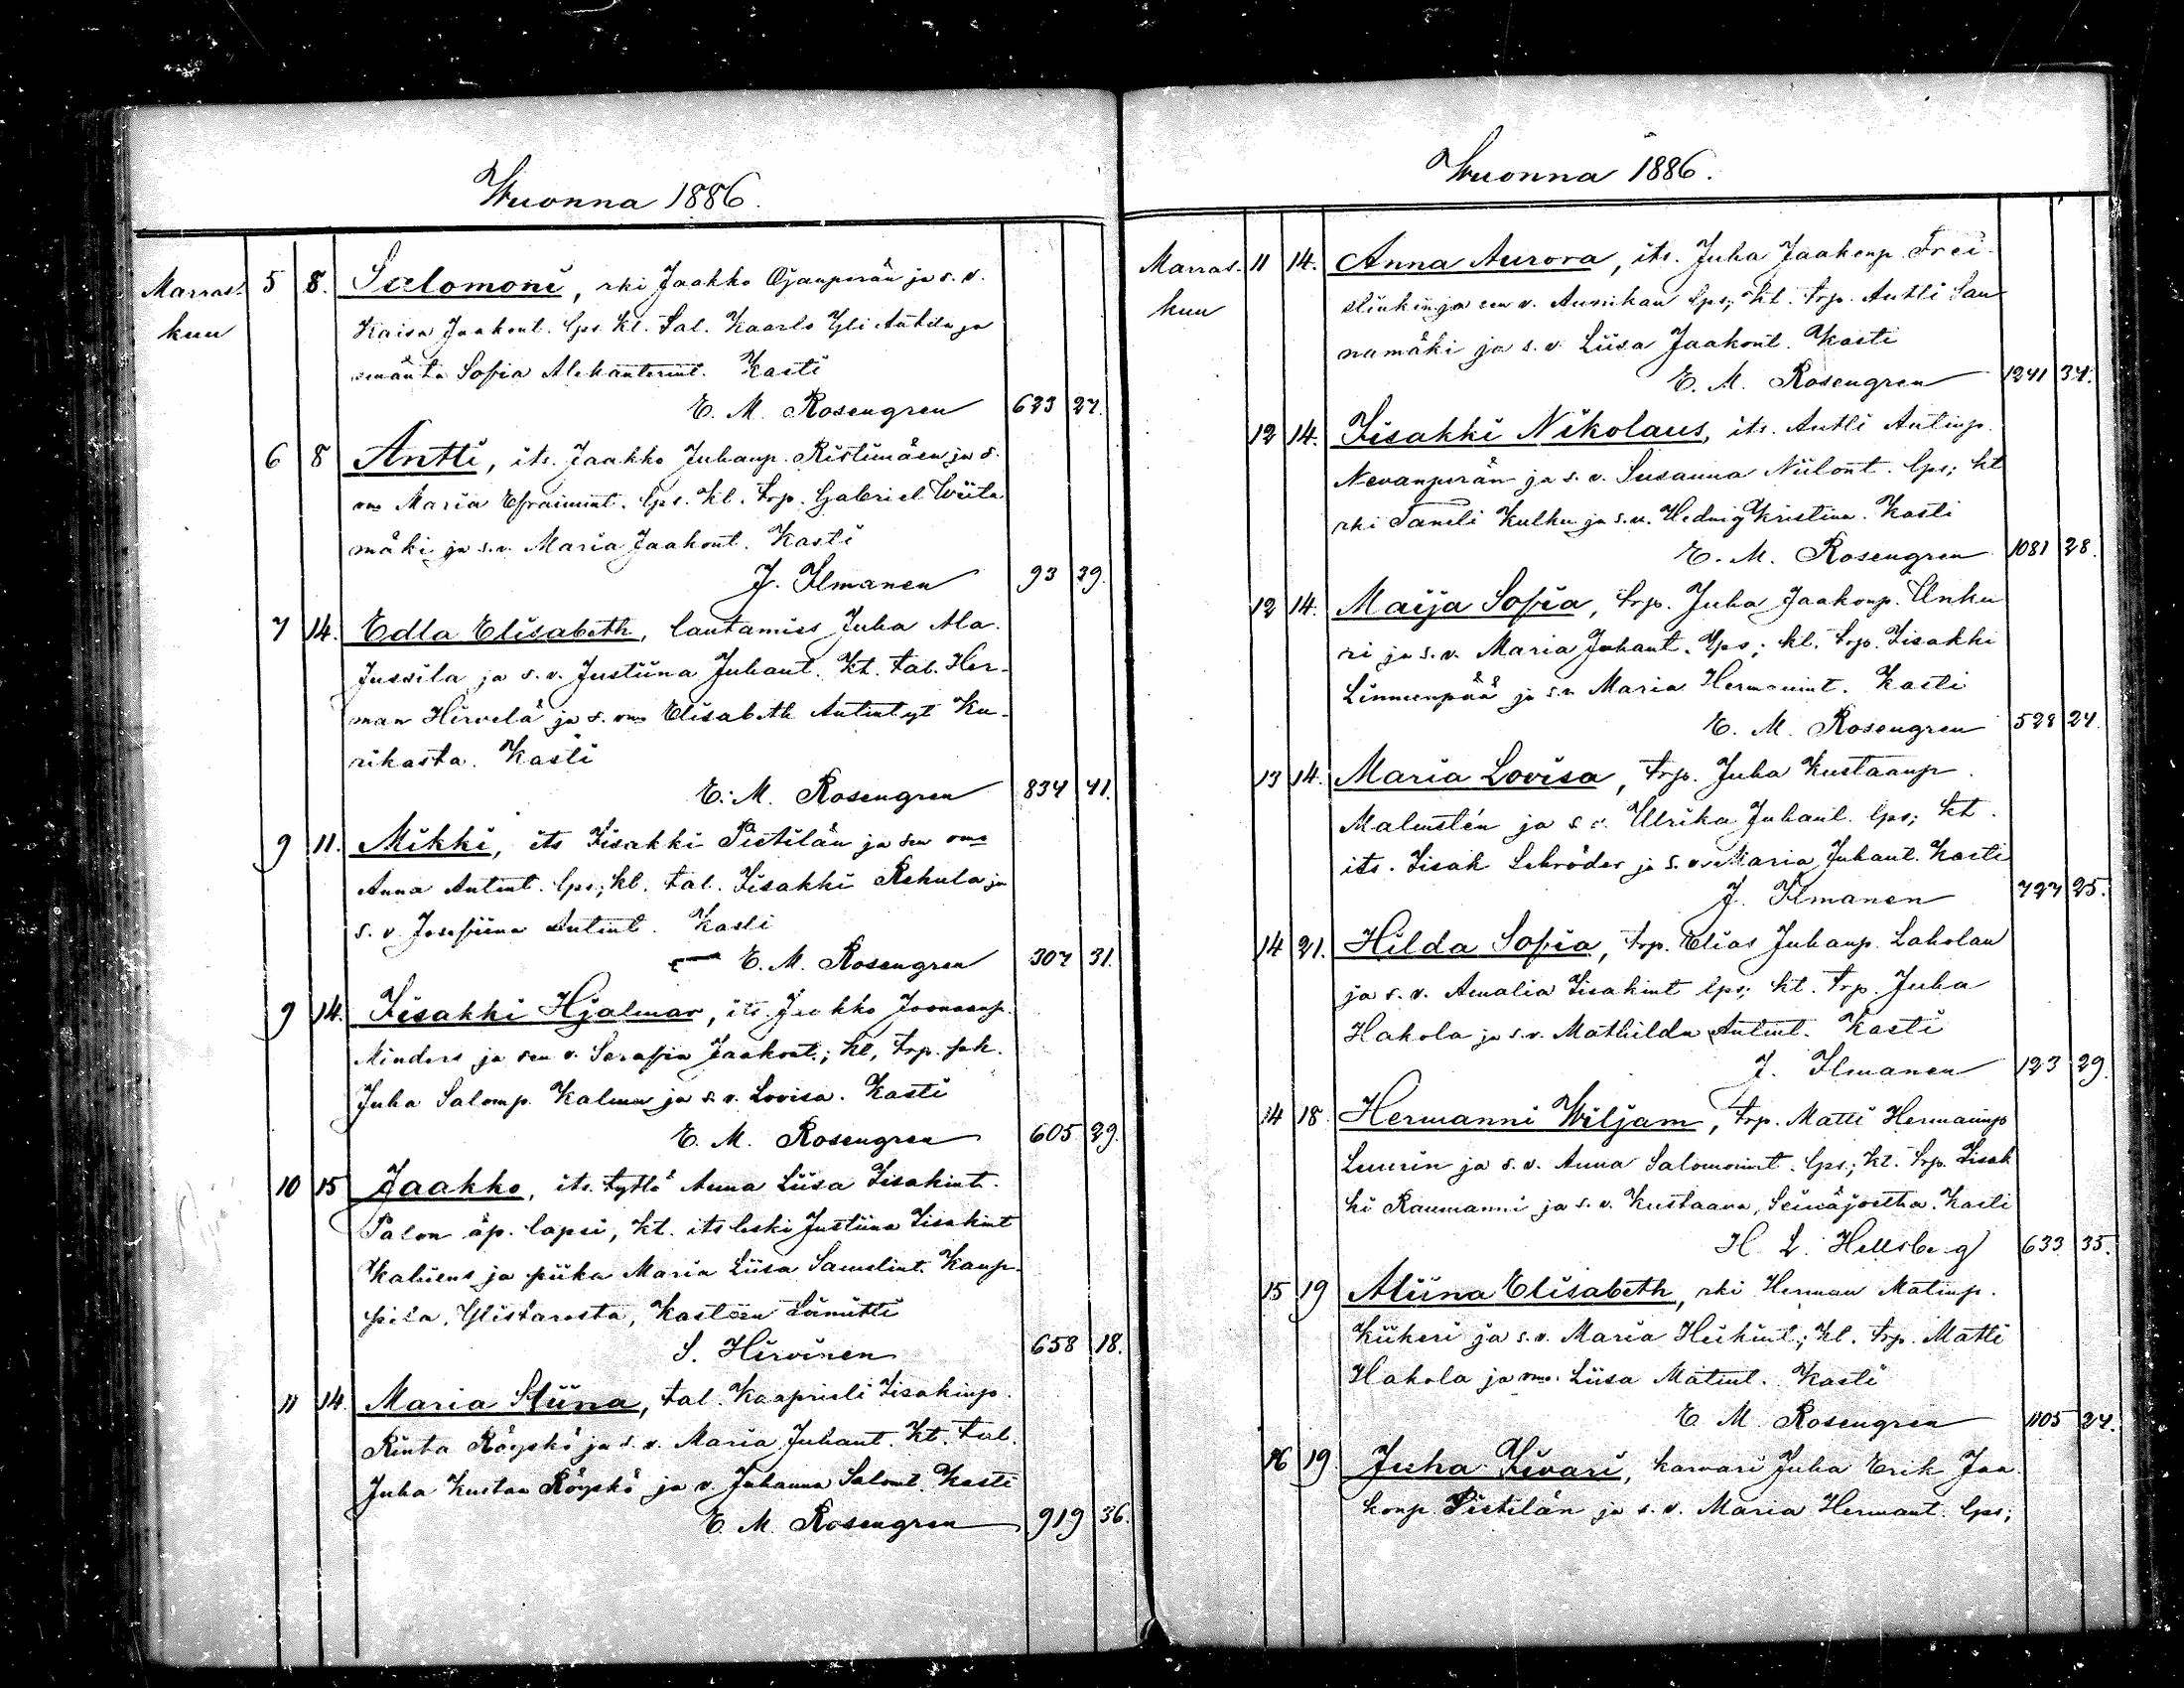 Wuonna 1886.
Marras- 5 8. Salomoni, rki Jaakko Ojanperän ja s. v.
kuu Kaisa Jaakont. lps. kt. tal. Kaarlo Yli Anttila ja
emäntä Sofia Aleksanterint. Kasti
E. M. Rosengren 623 27.
6 8 Antti, its. Jaakko Juhanp. Ristimäen ja s.
vmo Maria Efraimint. lps. kt. trp. Gabriel Wiita
mäki ja s. v. Maria Jaakont. Kasti
J. Ilmanen 93 39.
7 14. Edla Elisabeth, lautamies Juha Ala-
Jussila ja s. v. Justiina Juhant. Kt. tal. Her-
man Hirvelä ja s. vmo Elisabeth Antint yt Ku-
rikasta. Kasti
E. M. Rosengren 834 41.
9 11. Mikki, its Iisakki Pietilän ja sen vmo
Anna Antint. lps; kt. tal. Iisakki Rehula ja
s. v. Josefiina Antint. Kasti
E. M. Rosengren 307 31.
9 14. Iisakki Hjalmar, its. Jaakko Joonaanp.
Minders ja sen v. Serafia Jaakont.; kt, trp. pk.
Juha Salomp. Kalman ja s. v. Lovisa. Kasti
E. M. Rosengren 605 29.
10 15 Jaakko, its. tyttö Anna Liisa Iisakint.
Palon äp. lapsi, kt. its leski Justiina Iisakint
Kaliens ja piika Maria Liisa Samelint. Kaup-
pila, Ylistarosta, Kasteen toimitti
S. Hirvinen 658 18.
11 14. Maria Stiina, tal. Kaaprieli Iisakinp.
Rinta Röyskö ja s. v. Maria Juhant. Kt. tal.
Juha Kustaa Röyskö ja v. Juhanna Salomt. Kasti
E. M. Rosengren 919 36.
Wuonna 1886.
Marras- 11 14. Anna Aurora, its. Juha Jaakonp. Frei-
kuu slinkin ja sen v. Annikan lps; kt. trp. Antti San
namäki ja s. v. Liisa Jaakont. Kasti
E. M. Rosengren 1241 34.
12 14. Iisakki Nikolaus, its. Antti Antinp.
Nevanperän ja s. v. Susanna Niilont. lps; kt
rki Taneli Kulku ja s. v. Hedvig Kristina. Kasti
E. M. Rosengren 1081 28.
12 14. Maija Sofia, trp. Juha Jaakonp. Unku
ri ja s. v. Maria Juhant. lps; kt. trp. Iisakki
Linnunpää ja s. v. Maria Hermanint. Kasti
E. M. Rosengren 528 24.
13 14. Maria Lovisa, trp. Juha Kustaanp.
Malmstén ja s. v. Ulrika Juhant. lps; kt.
its. Iisak Schröder ja s. v. Maria Juhant. Kasti
J. Ilmanen 727 25.
14 21. Hilda Sofia, trp. Elias Juhanp. Laholan
ja s. v. Amalia Iisakint lps; kt. trp. Juha
Hakola ja s. v. Mathilda Antint. Kasti
J. Ilmanen 123 29.
14 18. Hermanni Wiljam, trp. Matti Hermaninp
Luurin ja s. v. Anna Salomonint. lps.; kt. trp. Iisak
ki Raumanni ja s. v. Kustaava, Seinäjoelta. Kasti
H. L. Hellsberg 633 35.
15 19 Aliina Elisabeth, rki Herman Matinp.
Kiikeri ja s. v. Maria Heikint.; kt. trp. Matti
Hakola ja vmo. Liisa Matint. Kasti
E M Rosengren 1105 24.
16 19. Juha Iivari, karvari Juha Erik Jaa
konp. Pietilän ja s. v. Maria Hermant. lps;